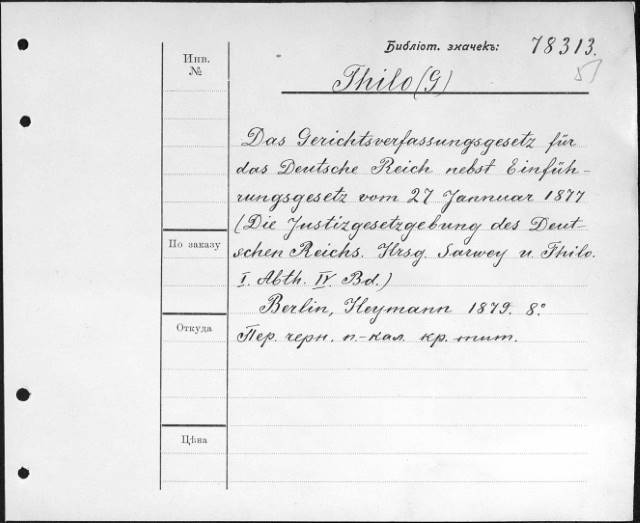 Библіот. значекъ: 78313.
Инв. №
Thilo (G)
Das Gerichtsverfassungsgesetz für
das Deutsche Reich nebst Einfüh-
rungsgesetz vom 27 Jannuar 1877
(Die Justizgesetzgebung des Deut-
schen Reichs. Hrsg. Sarwey u. Thilo.
I. Abth. IV. Bd.)
По заказу
Berlin, Heymann 1879. 8.°
Откуда
Пер. черн. п.-кал. кр. тит.
Цѣна